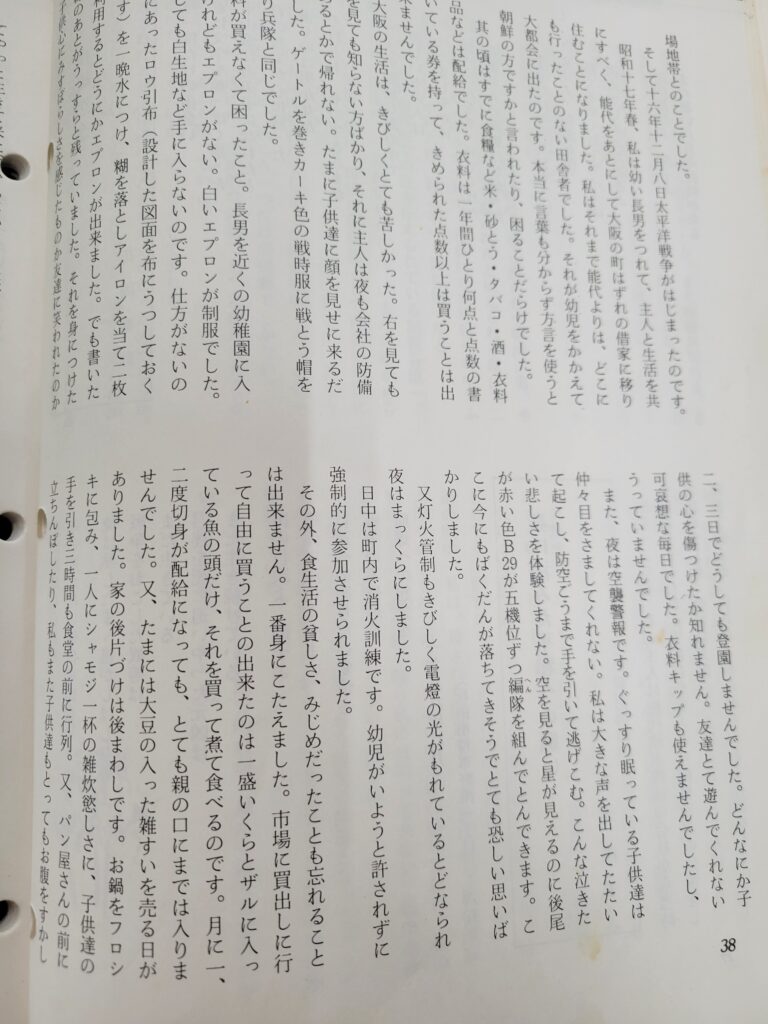 場地帯とのことでした。
そして十六年十二月八日太平洋戦争がはじまったのです。
昭和十七年春、私は幼い長男をつれて、主人と生活を共
にすべく、能代をあとにして大阪の町はずれの借家に移り
住むことになりました。私はそれまで能代よりは、どこに
も行ったことのない田舎者でした。それが幼児をかかえて
大都会に出たのです。本当に言葉も分からず方言を使うと
朝鮮の方ですかと言われたり、困ることだらけでした。
其の頃はすでに食糧など米・砂とう・タバコ・酒・衣料
品などは配給でした。衣料は一年間ひとり何点と点数の書
いている券を持って、きめられた点数以上は買うことは出
来ませんでした。
大阪の生活は、きびしくとても苦しかった。右を見ても
を見ても知らない方ばかり、それに主人は夜も会社の防備
るとかで帰れない。たまに子供達に顔を見せに来るだ
した。ゲートルを巻きカーキ色の戦時服に戦とう帽を
り兵隊と同じでした。
料が買えなくて困ったこと。長男を近くの幼稚園に入
けれどもエプロンがない。白いエプロンが制服でした。
しても白生地など手に入らないのです。仕方がないの
にあったロウ引布（設計した図面を布にうつしておく
す）を一晩水につけ、糊を落としアイロンを当て二枚
利用するとどうにかエプロンが出来ました。でも書いた
のあとがうっすらと残っていました。それを身につけた
子供心にみすぼらしさを感じたものか友達に笑われたのか
二、三日でどうしても登園しませんでした。どんなにか子
供の心を傷つけたか知れません。友達とて遊んでくれない
可哀想な毎日でした。衣料キップも使えませんでしたし、
うっていませんでした。
また、夜は空襲警報です。ぐっすり眠っている子供達は
仲々目をさましてくれない。私は大きな声を出してたたい
て起こし、防空ごうまで手を引いて逃げこむ。こんな泣きた
い悲しさを体験しました。空を見ると星が見えるのに後尾
が赤い色B29が五機位ずつ編隊を組んでとんできます。こ
へん
こに今にもばくだんが落ちてきそうでとても恐しい思いば
かりしました。
又灯火管制もきびしく電燈の光がもれているとどなられ
夜はまっくらにしました。
日中は町内で消火訓練です。幼児がいようと許されずに
強制的に参加させられました。
その外、食生活の貧しさ、みじめだったことも忘れること
は出来ません。一番身にこたえました。市場に買出しに行
って自由に買うことの出来たのは一盛いくらとザルに入っ
ている魚の頭だけ、それを買って煮て食べるのです。月に一、
二度切身が配給になっても、とても親の口にまでは入りま
せんでした。又、たまには大豆の入った雑すいを売る日が
ありました。家の後片づけは後まわしです。お鍋をフロシ
キに包み、一人にシャモジ一杯の雑炊慾しさに、子供達の
手を引き二時間も食堂の前に行列。又、パン屋さんの前に
立ちんぼしたり、私もまた子供達もとってもお腹をすかし
38